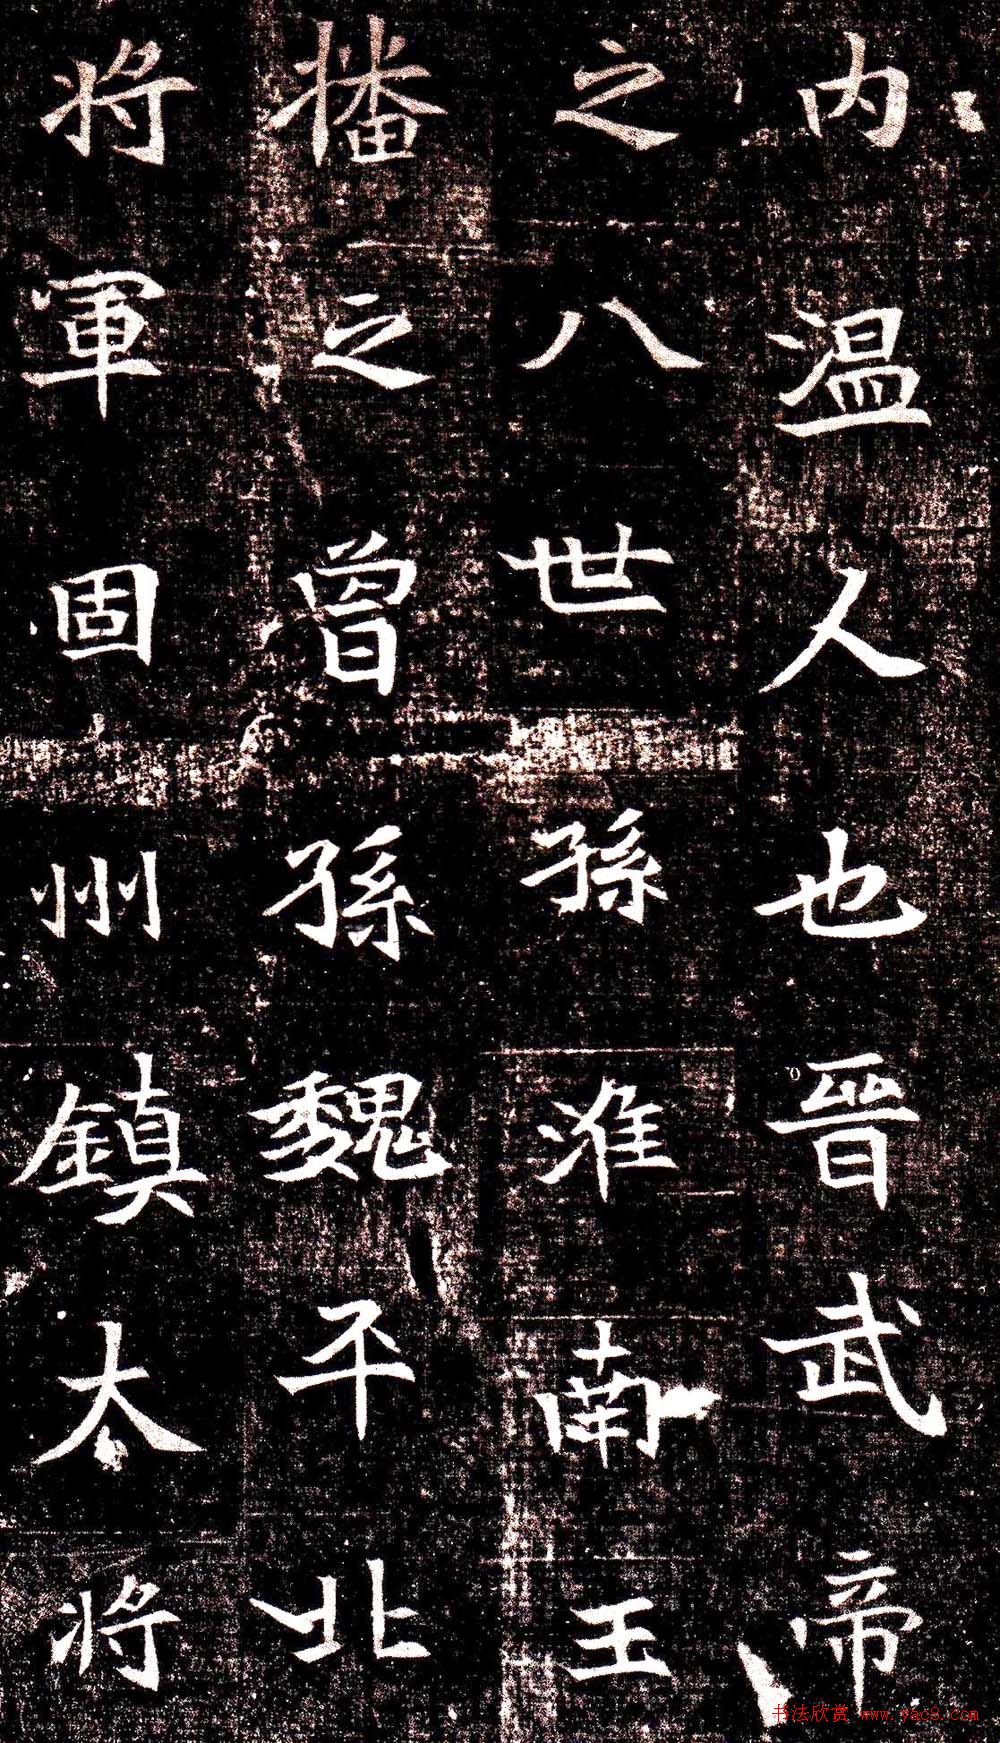 内温人也晋武帝
之八世孫淮南王
播之曾孫魏平北
將軍固州鎮太將
书法欣赏 www.yac8.com